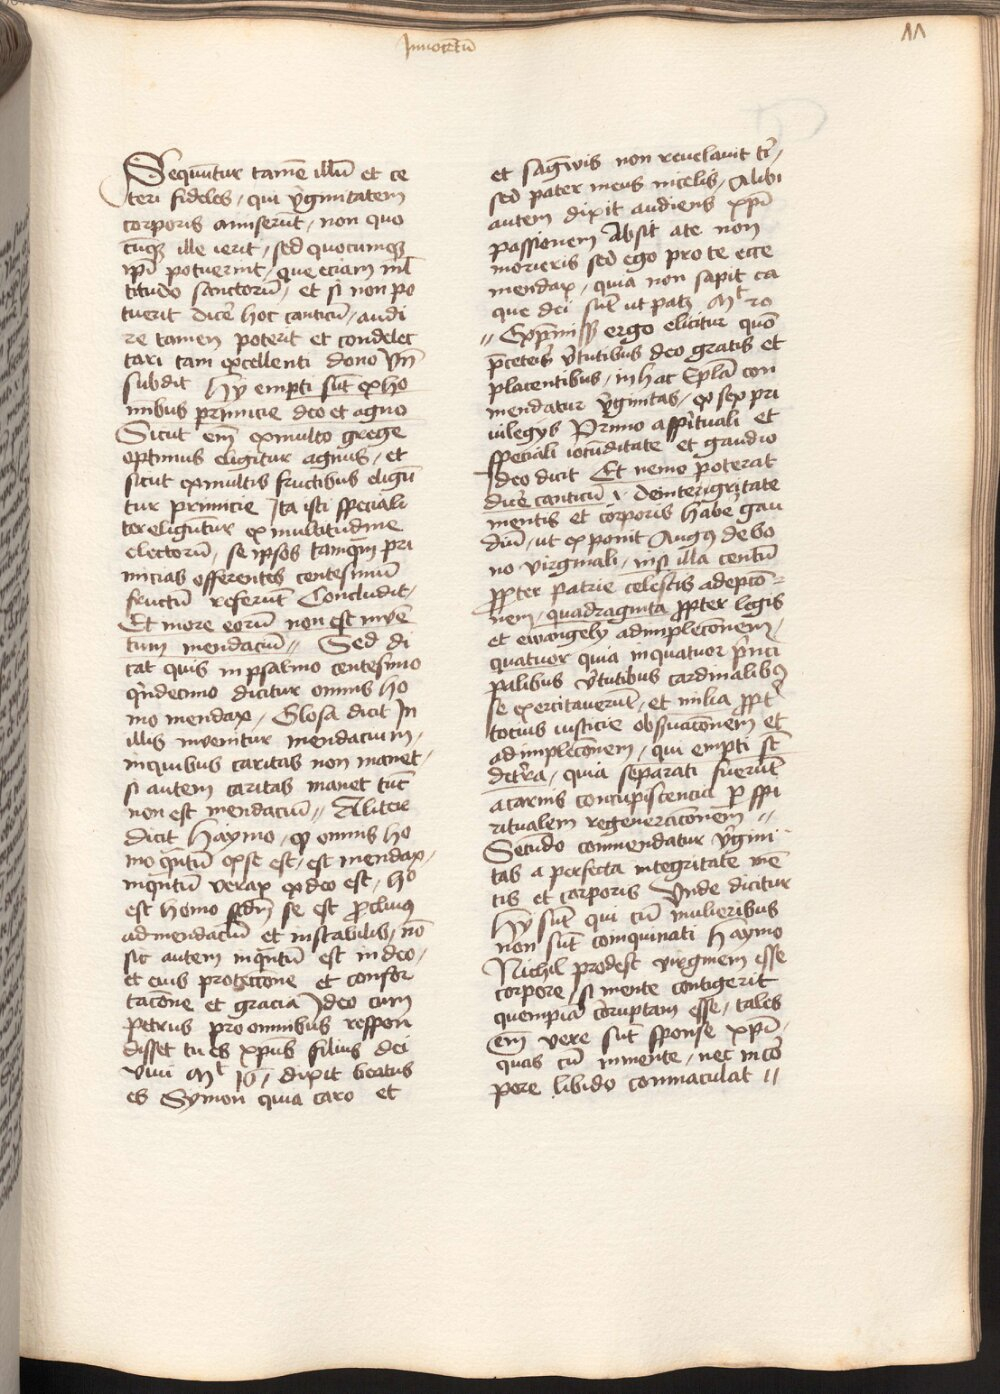 Innocētū
11
Sequūtur tamē illū et ce
teri fideles / qui v̓ginitatem
corporis amiserūt / non quo
cūqꝫ ille ierit / sed quocumqꝫ
ip̄i potuerint / que eciam ml̄
titudo sanctorū / et si non po
tuerit dice᷑ hoc canticū / audi
re tamen poterit et condelec
tari tam excellenti dono Vn̄
subdit Hÿ empti sūt ex ho
minibus primicie deo et agno
Sicut em̄ ex multo grege
optimus eligitur agnus / et
sicut ex multis fructibus eligū
tur primicie Ita isti speciali
ter eligūtur ex multitudine
electorū / se ipsos tamqm̄ pri
micias offerentes centesimū
fructū referūt Concludit /
Et in ore eorū non est invē
tum mendaciū // Sed di
cat quis in psalmo centesimo
qͥndecimo dicitur omnis ho
mo mendax / Glosa dicit In
illis invenitur mendacium /
in quibus caritas non manet /
si autem caritas manet tūc
non est mendaciū // Aliter
dicit Haymo / qꝫ omnis ho
mo qn̄tū ex se est / est mendax /
inqn̄tū verax ex deo est / hͦ
est homo scdm̄ se est ꝓclivꝯ
ad mendaciū et instabilis / nō
sic autem inqn̄tū est in deo /
et eius protectōne et confor
tacōne et gracia Ideo cum
petrus pro omnibus respon
disset tu es xpūs filius dei
vivi Mt̄ 16 / dixit beatus
es Symon quia caro et
et sāgwis non revelavit tͥ /
sed pater meus in celis / Alibi
autem dixit audiens xpī
passionem Absit a te non
morieris sed ego pro te ecce
mendax / quia non sapit ea
que dei sūt ut patꝫ Mt̄ 20
// Exp̄miss̄ ergo elicitur quō
p̄ceteris v̓tutibus deo gratis et
placentibus / in hac Ep̄la con
mendatur v̓ginitas / ex sex pri
vilegÿs Primo a spirituali et
speciali iocūditate et gaudio
Ideo dicit Et nemo poterat
dice᷑ canticū ı de interigritate
mentis et corporis habe᷑ gau
diū / ut exponit Augꝯ de bo
no virginali / nisi illa centū
ꝓpter patrie celestis adepcō=
nem / quadraginta ꝓpter legis
et ewangelÿ adimplecōnem /
quatuor quia in quatuor p̓nci
palibus v̓tutibus cardinalibꝯ
se exercitaverūt / et milia ꝓpt᷑
tocius iusticie obs̓vacōnem et
adimplecōnem / qui empti sūt
de t̓ra / quia separati fuerūt
a carnis concupiscencia ꝑ spi
ritualem regeneracōnem //
Secūdo commendatur v̓gini
tas a perfecta integritate mē
tis et corporis Vnde dicitur
Hÿ sūt qui cū mulieribus
non sūt coinquinati Haymo
Nichil prodest virginem esse
corpore / si mente contigerit
quempiā corruptam esse / tales
em̄ vere sūt sponse xpī /
quas cū in mente / nec in cō
pore libido conmaculat //